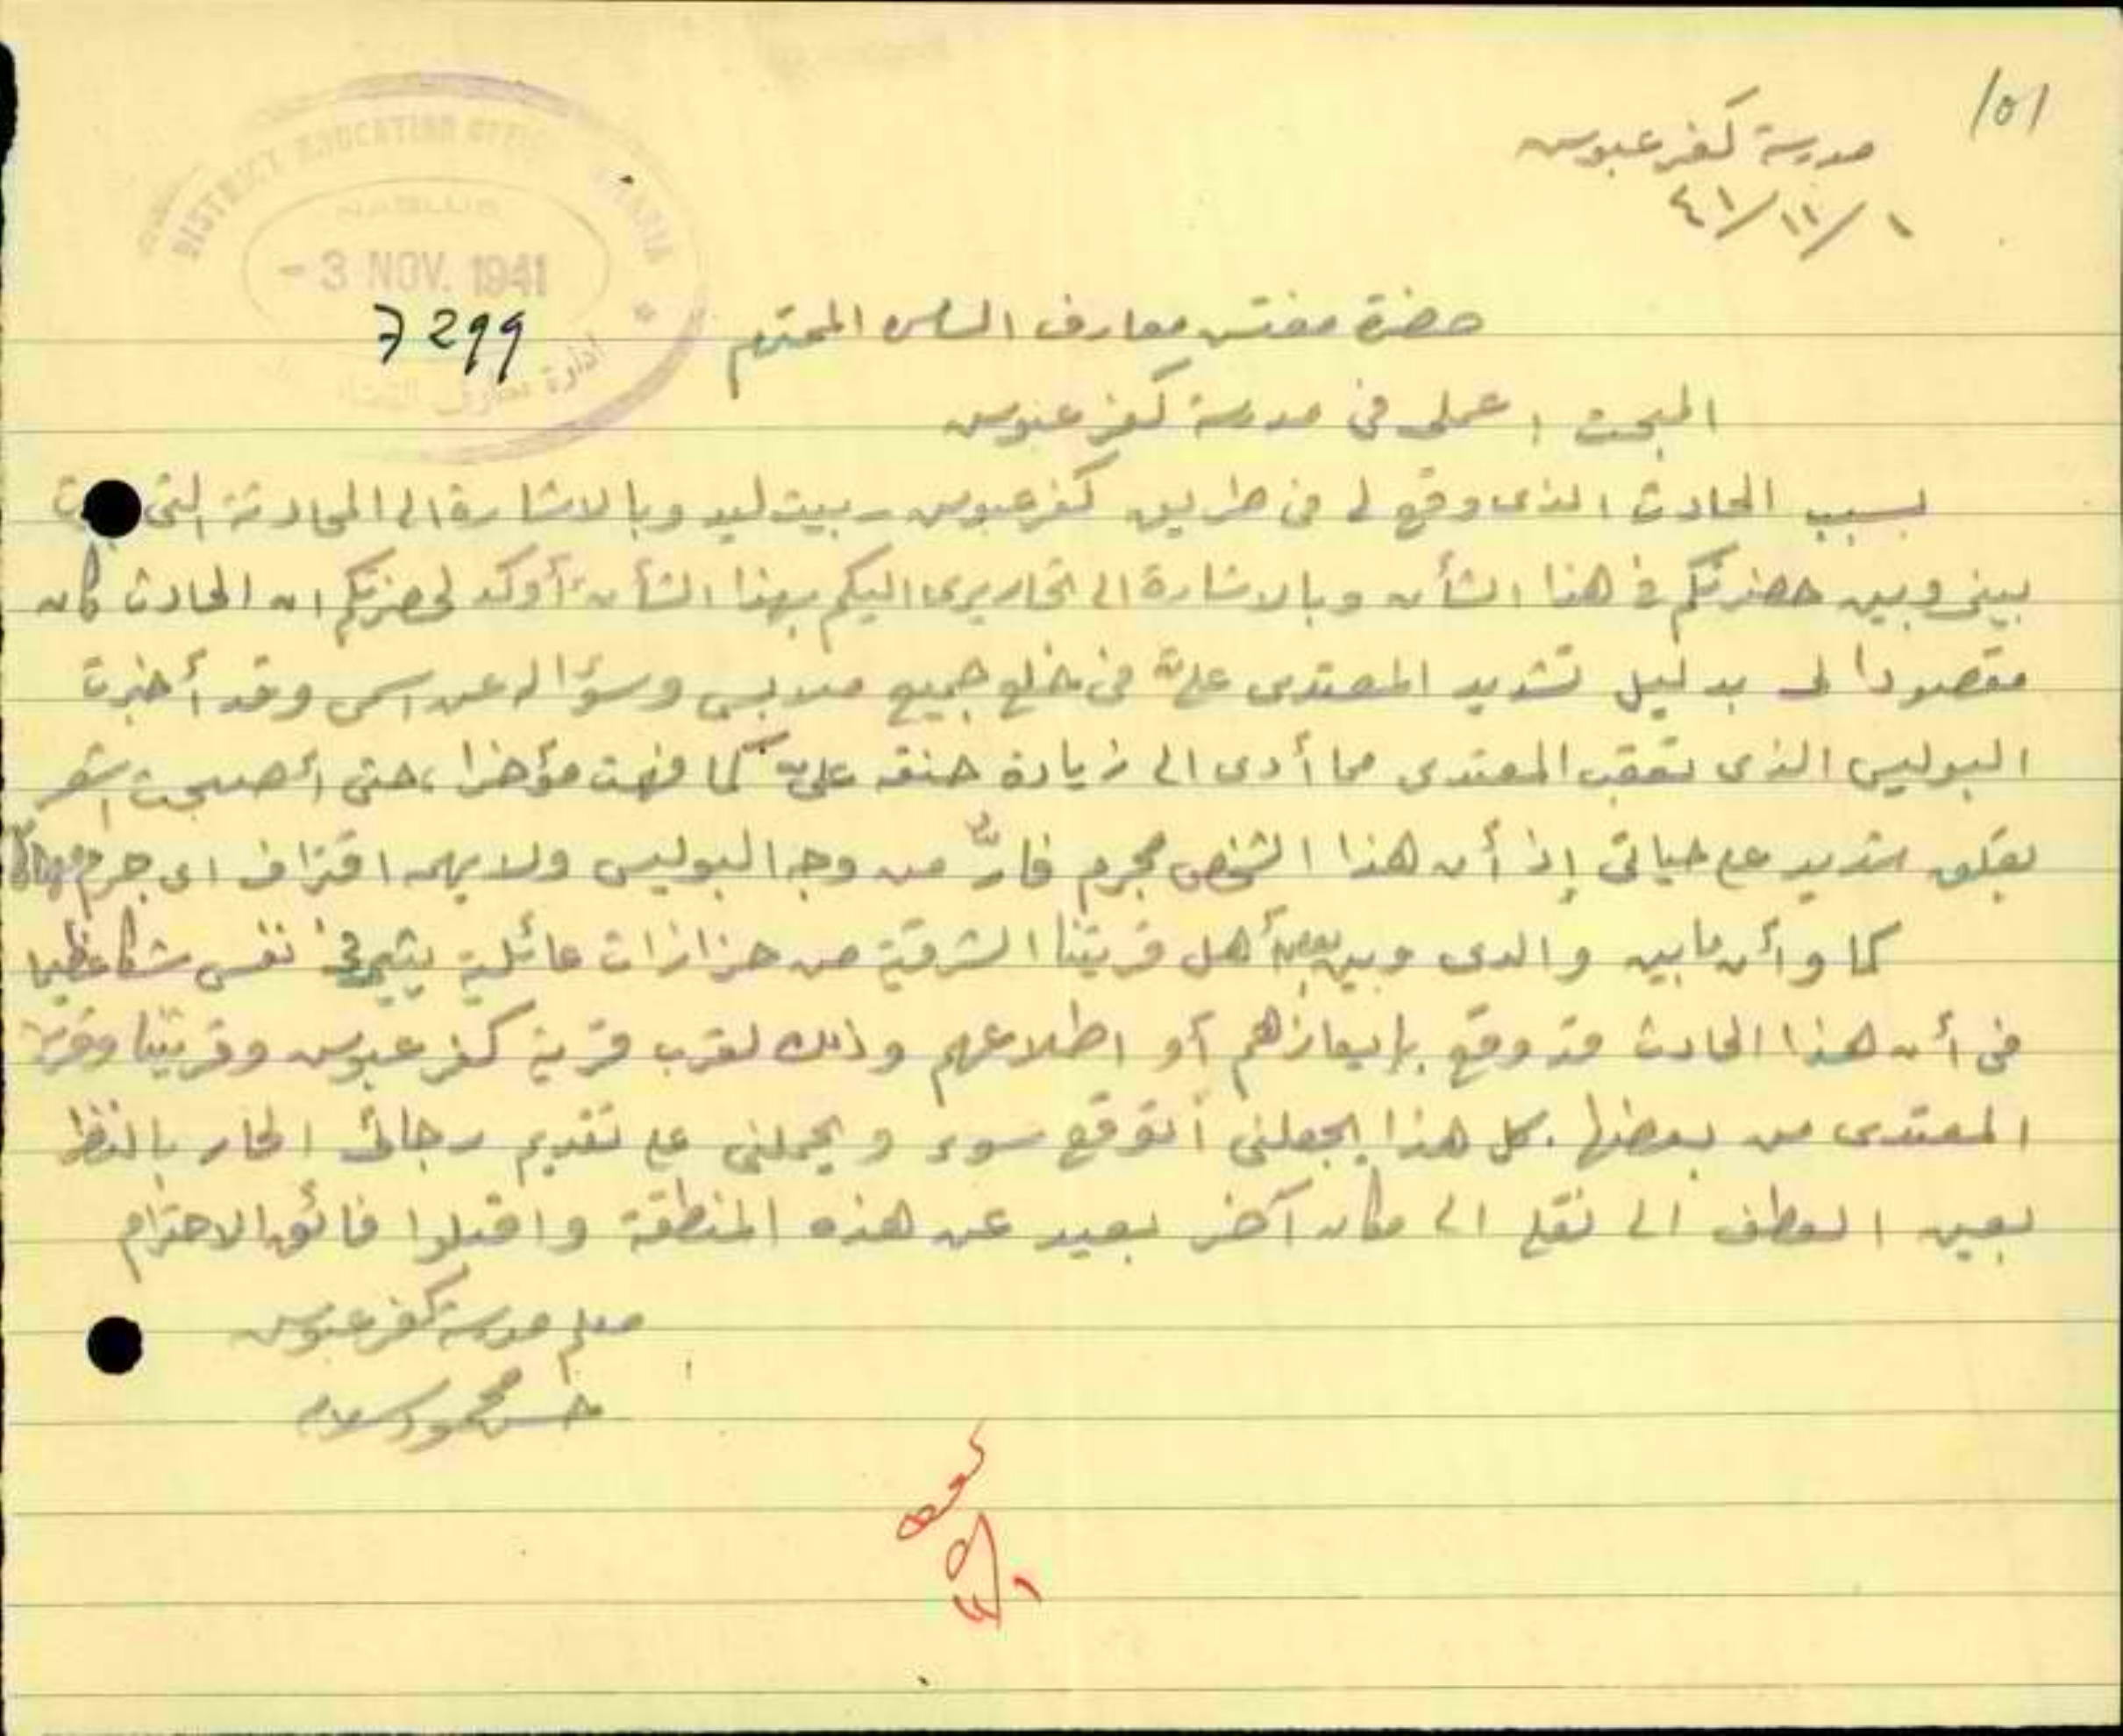 101
مدرسة كفر عبوس
١/١١/٤١
DISTRICT EDUCATION OFFICE SAMARIA
NABLUS
- 3 NOV. 1941
7299
ادارة معارف
حضرة مفتش معارف السامره المحترم
المبحث : عملي في مدرسة كفر عبوس
بسبب الحادث الذى وقع لي في طريق كفر عبوس - بيت ليد وبالاشارة الى المحادثة التي
بيني وبين حضرتكم في هذا الشأن وبالاشارة الى تحاريرى اليكم بهذا الشأن أوكد لحضرتكم ان الحادث كان
مقصودا لي بدليل تشديد المعتدى عليّ في خلع جميع ملابسي وسؤاله عن اسمي وقد أخبرت
البوليس الذى تعقب المعتدى مما أدى الى زيادة حنقه عليّ كما فهمت مؤخرا، حتى أصبحت اشعر
بقلق شديد على حياتي إذ أن هذا الشخص مجرم فارّ من وجه البوليس ولا يهمه اقتراف اى جرم مهما كان
كما وأن ما بين والدى وبين بعض أهل قريتنا الشرقية من حزازات عائلية يثير في نفسي شكا عظيما
في أن هذا الحادث قد وقع بإيعازهم أو اطلاعهم وذلك لقرب قرية كفر عبوس وقريتنا وقرية
المعتدى من بعضها. كل هذا يجعلني أتوقع سوء ويحملني على تقديم رجائي الحار بالنظر
بعين العطف الى نقلي الى مكان آخر بعيد عن هذه المنطقة واقبلوا فائق الاحترام
معلم مدرسة كفر عبوس
حسن محمود سلام